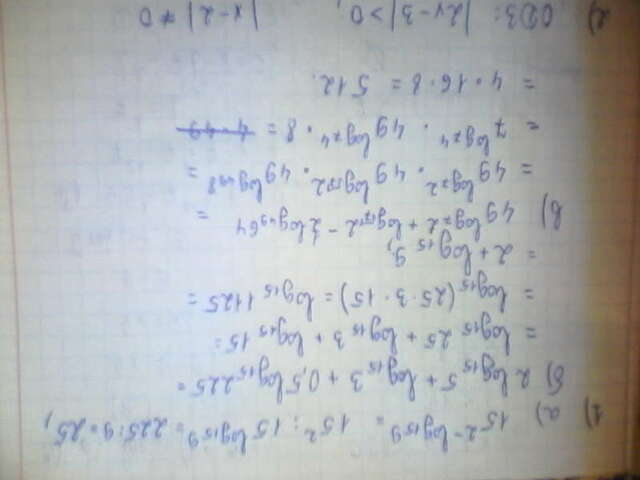 1) а) 15^{2-log_{15}9} = 15² : 15^{log_{15}9} = 225 : 9 = 25;
б) 2 log_{15} 5 + log_{15} 3 + 0,5 log_{15} 225 =
= log_{15} 25 + log_{15} 3 + log_{15} 15 =
= log_{15} (25 · 3 · 15) = log_{15} 1125 =
= 2 + log_{15} 9;
в) 49^{log_7 2 + log_7 2 - ½ log_{49} 64} =
= 49^{log_7 2} · 49^{log_7 2} · 49^{log_{49} 8} =
= 7^{log_7 4} · 49^{log_7 4} · 8 = 4 · 49
= 4 · 16 · 8 = 512.
2) ОДЗ: |2x-3| > 0, |x-2| ≠ 0